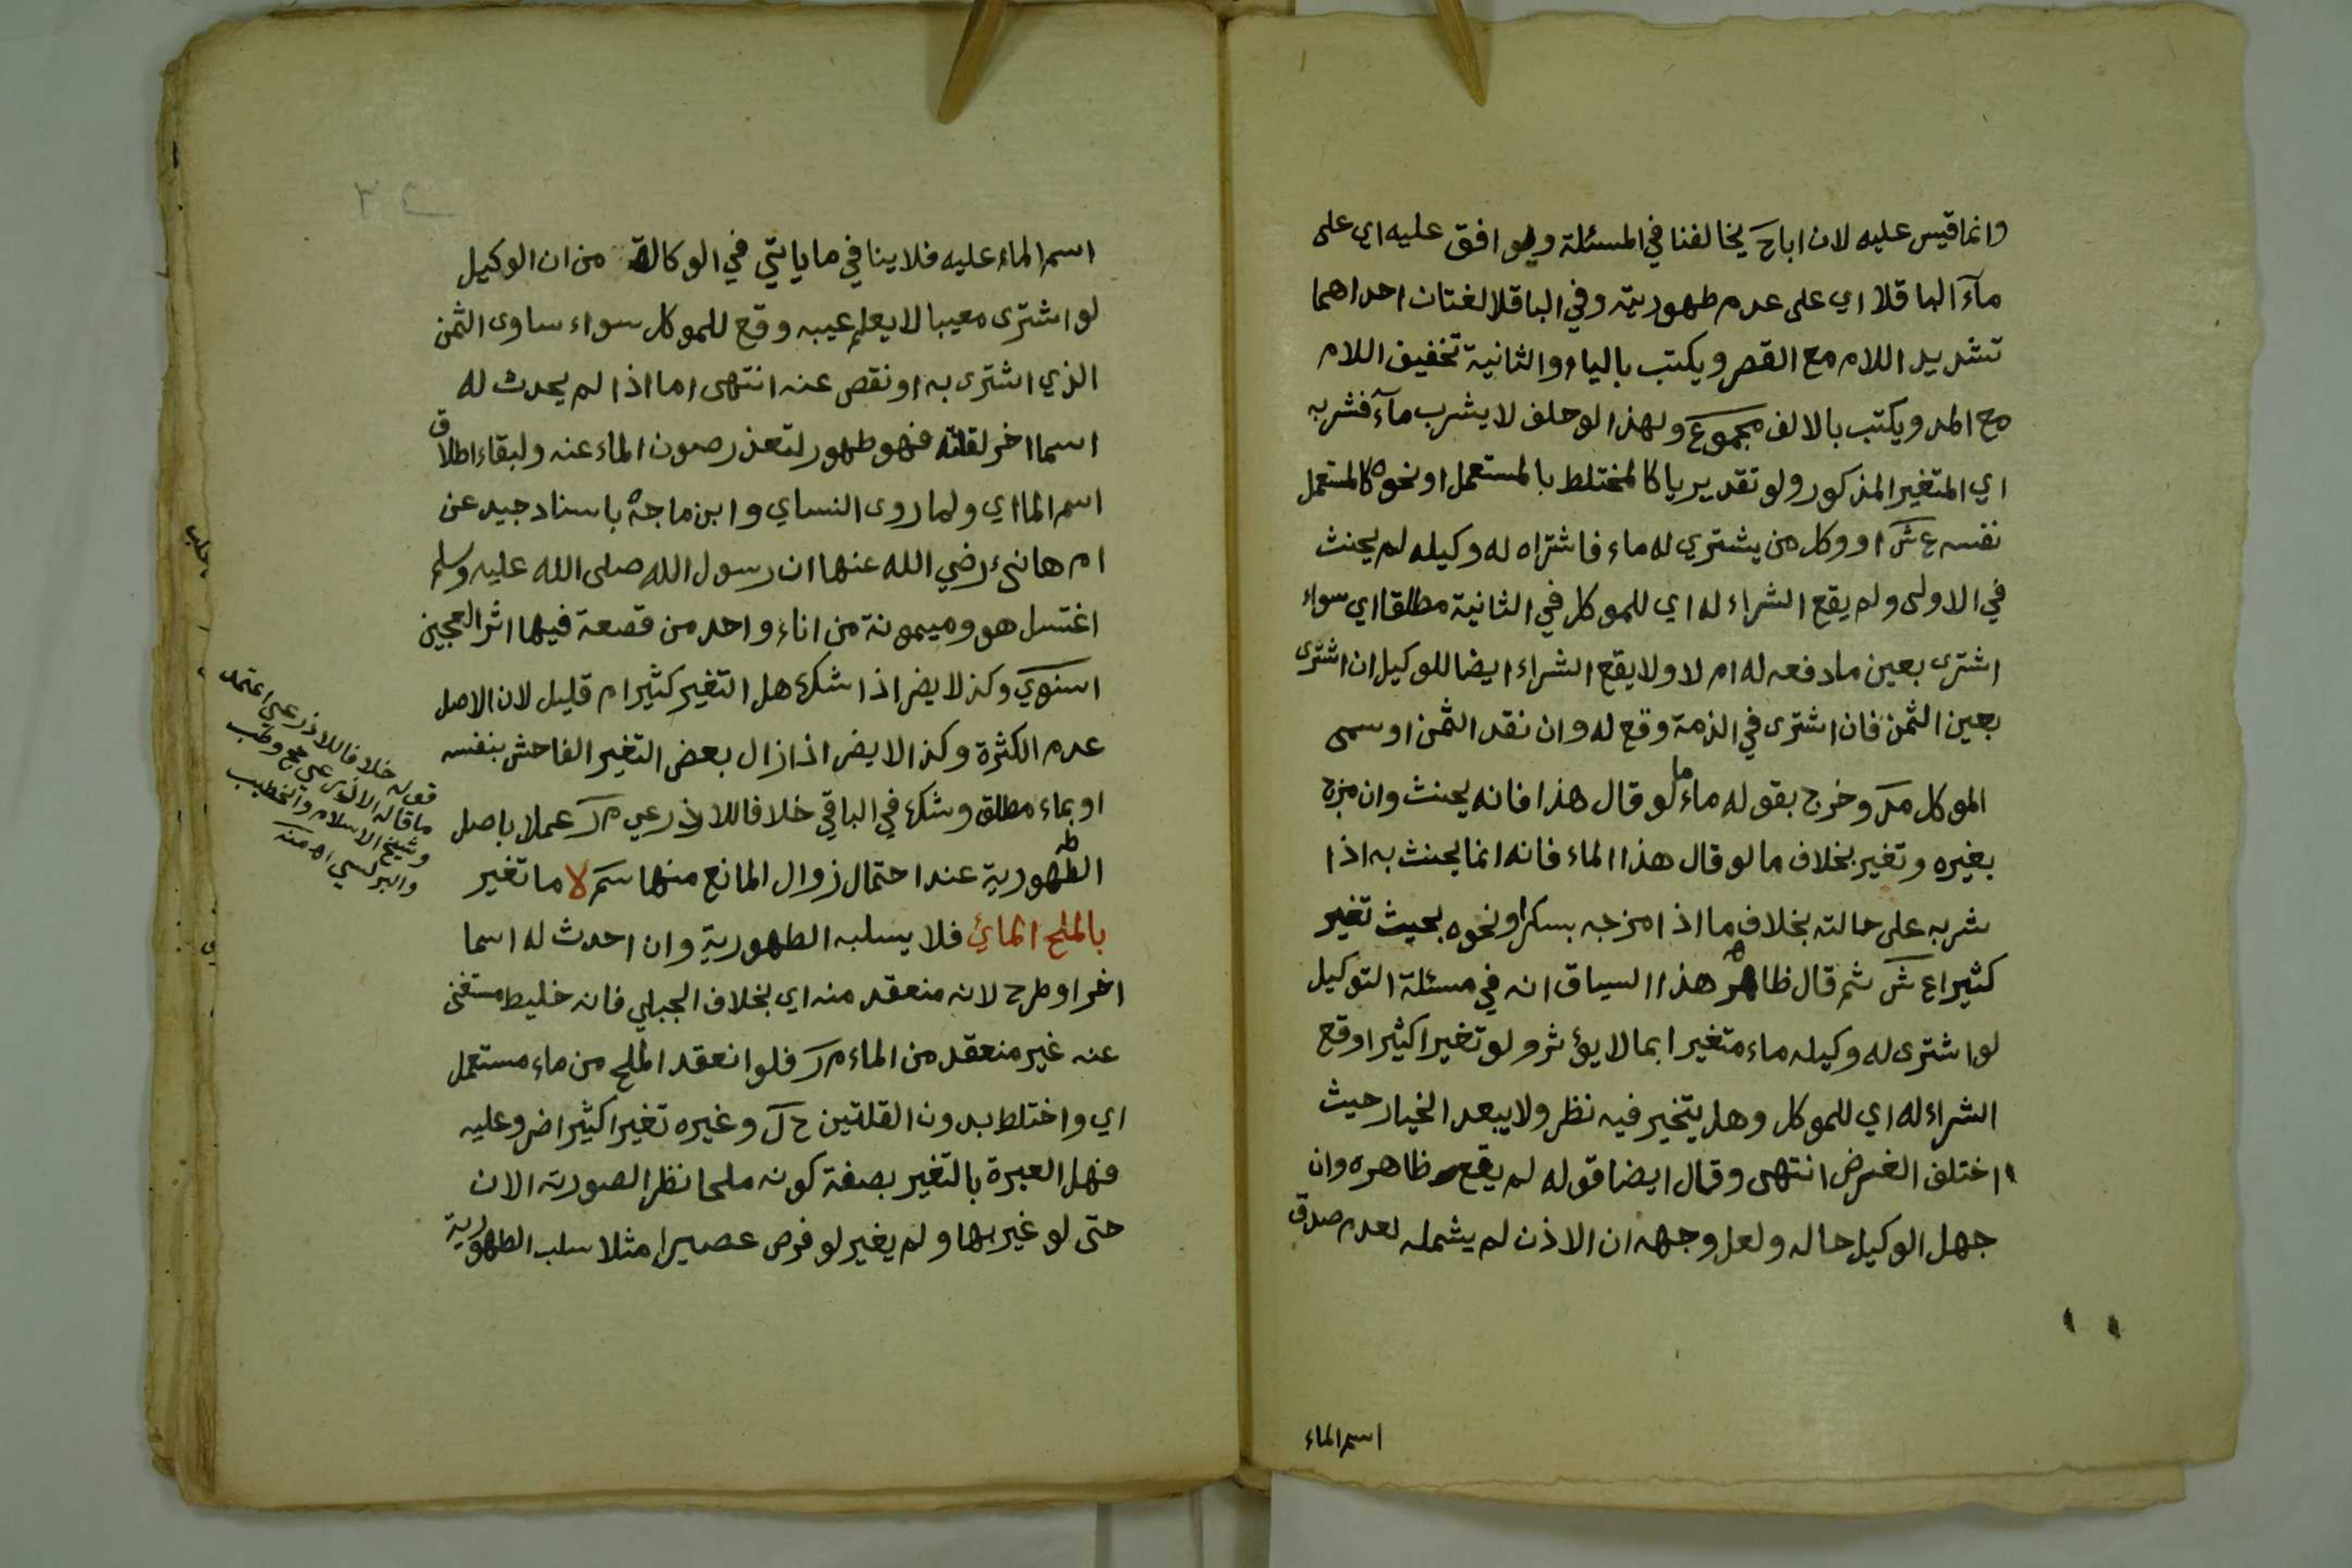 وانما قيس عليه لان اباح يخالفنا في المسئلة ويوافق عليه اي على
مآء الباقلا اي على عدم طهوريته وفي الباقلا لغتان احداهما
تشديد اللام مع القصر ويكتب بالياء والثانية تخفيف اللام
مع المد ويكتب بالالف مجموع ولهذا لو حلف لا يشرب مآء فشربه
اي المتغير المذكور ولو تقديريا كالمختلط بالمستعمل او نحوه كالمستعمل
نفسه ع ش او وكل من يشتري له ماء فاشتراه له وكيله لم يحنث
في الاولى ولم يقع الشراء له اي للموكل في الثانية مطلقا اي سواء
اشترى بعين ما دفعه له ام لا ولا يقع الشراء ايضا للوكيل ان اشترى
بعين الثمن فان اشترى في الذمة وقع له وان نقد الثمن او سمى
الموكل مد وخرج بقوله ماء ما لو قال هذا فانه يحنث وان مزج
بغيره وتغير بخلاف ما لو قال هذا الماء فانه انما يحنث به اذا
شربه على حالته بخلاف ما اذا مزجه بسكر او نحوه بحيث تغير
كثيرا ع ش ثم قال ظاهر هذا السياق انه في مسئلة التوكيل
لو اشترى له وكيله ماء متغيرا بما لا يؤثر ولو تغيرا كثيرا وقع
الشراء له اي للموكل وهل يتخير فيه نظر ولا يبعد الخيار حيث
اختلف الغرض انتهى وقال ايضا قوله لم يقع ظاهره وان
جهل الوكيل حاله ولعل وجهه ان الاذن لم يشمله لعدم صدق
اسم الماء
اسم الماء عليه فلا ينافي ما ياتي في الوكالة من ان الوكيل
لو اشترى معيبا لا يعلم عيبه وقع للموكل سواء ساوى الثمن
الذي اشترى به او نقص عنه انتهى اما اذا لم يحدث له
اسما اخر لقلته فهو طهور لتعذر صون الماء عنه ولبقاء اطلاق
اسم الما اي ولما روى النساي وابن ماجه باسناد جيد عن
ام هانئ رضي الله عنها ان رسول الله صلى الله عليه وسلم
اغتسل هو وميمونة من اناء واحد من قصعة فيها اثر العجين
اسنوي وكذا لا يضر اذا شك هل التغير كثير ام قليل لان الاصل
عدم الكثرة وكذا لا يضر اذا زال بعض التغير الفاحش بنفسه
او بماء مطلق وشك في الباقي خلافا للاذرعي م ر عملا باصل
الطهورية عند احتمال زوال المانع منها سم لا ما تغير
بالملح المائي فلا يسلبه الطهورية وان احدث له اسما
اخر او طرح لانه منعقد منه اي بخلاف الجبلي فانه خليط مستغنى
عنه غير منعقد من الماء م ر فلو انعقد الملح من ماء مستعمل
اي واختلط بدون القلتين ح ل وغيره تغيرا كثيرا ضر وعليه
فهل العبرة بالتغير بصفة كونه ملحا نظرا لصورته الان
حتى لو غير بها ولم يغير لو فرض عصيرا مثلا سلب الطهورية
قوله خلافا للاذرعي اعتمد
ما قاله الاذرعي حج وطب
وشيخ الاسلام والخطيب
والبرلسي اه منه